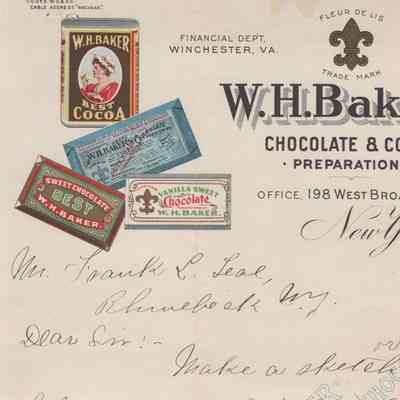 CABLE ADDRESS
FINANCIAL DEPT.
WINCHESTER, VA.
FLEUR DE LIS
TRADE MARK
W.H.BAKER
BEST
COCOA
W.H.Bak
CHOCOLATE & CO
· PREPARATION
OFFICE, 198 WEST BROA
New Y
W.H.BAKER'S
SWEET CHOCOLATE
BEST
W.H.BAKER.
VANILLA SWEET
Chocolate
W.H.BAKER.
Mr. Frank L. Teal,
Rhinebeck N.Y.
Dear Sir:-
Make a sketch